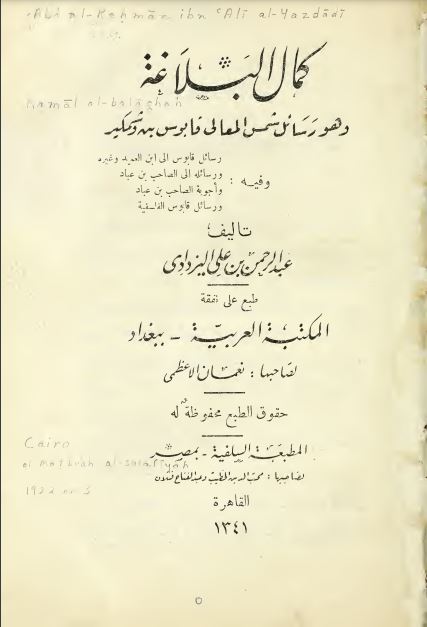 'Abd al-Rahmān ibn 'Alī al-Yazdādī
كمال البلاغة
Kamāl al-balāghah
وهو رسائل شمس المعالي قابوس بن وشمكير
رسائل قابوس الى ابن العميد وغيره
ورسائله الى الصاحب بن عباد
وفيه :
وأجوبة الصاحب بن عباد
ورسائل قابوس الفلسفية
تاليف
عبد الرحمن بن علي اليزدادي
طبع على نفقة
المكتبة العربية - ببغداد
لصاحبها : نعمان الاعظمي
حقوق الطبع محفوظة له
Cairo
المطبعة السلفية - بمصر
al-Matba'ah al-salafiyah
لصاحبها : محب الدين الخطيب وعبد الفتاح قتلان
1922 or 3
القاهرة
١٣٤١